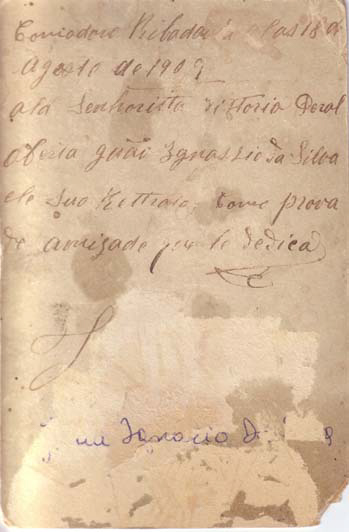 Comodoro Ribadavia a las 18 de
Agosto de 1909
a la Senhoritta Vittoria Peral
oferta guai Ignassio da Silva
ele suo Rettrato Come prova
de amizade que le dedica
Ignacio D.